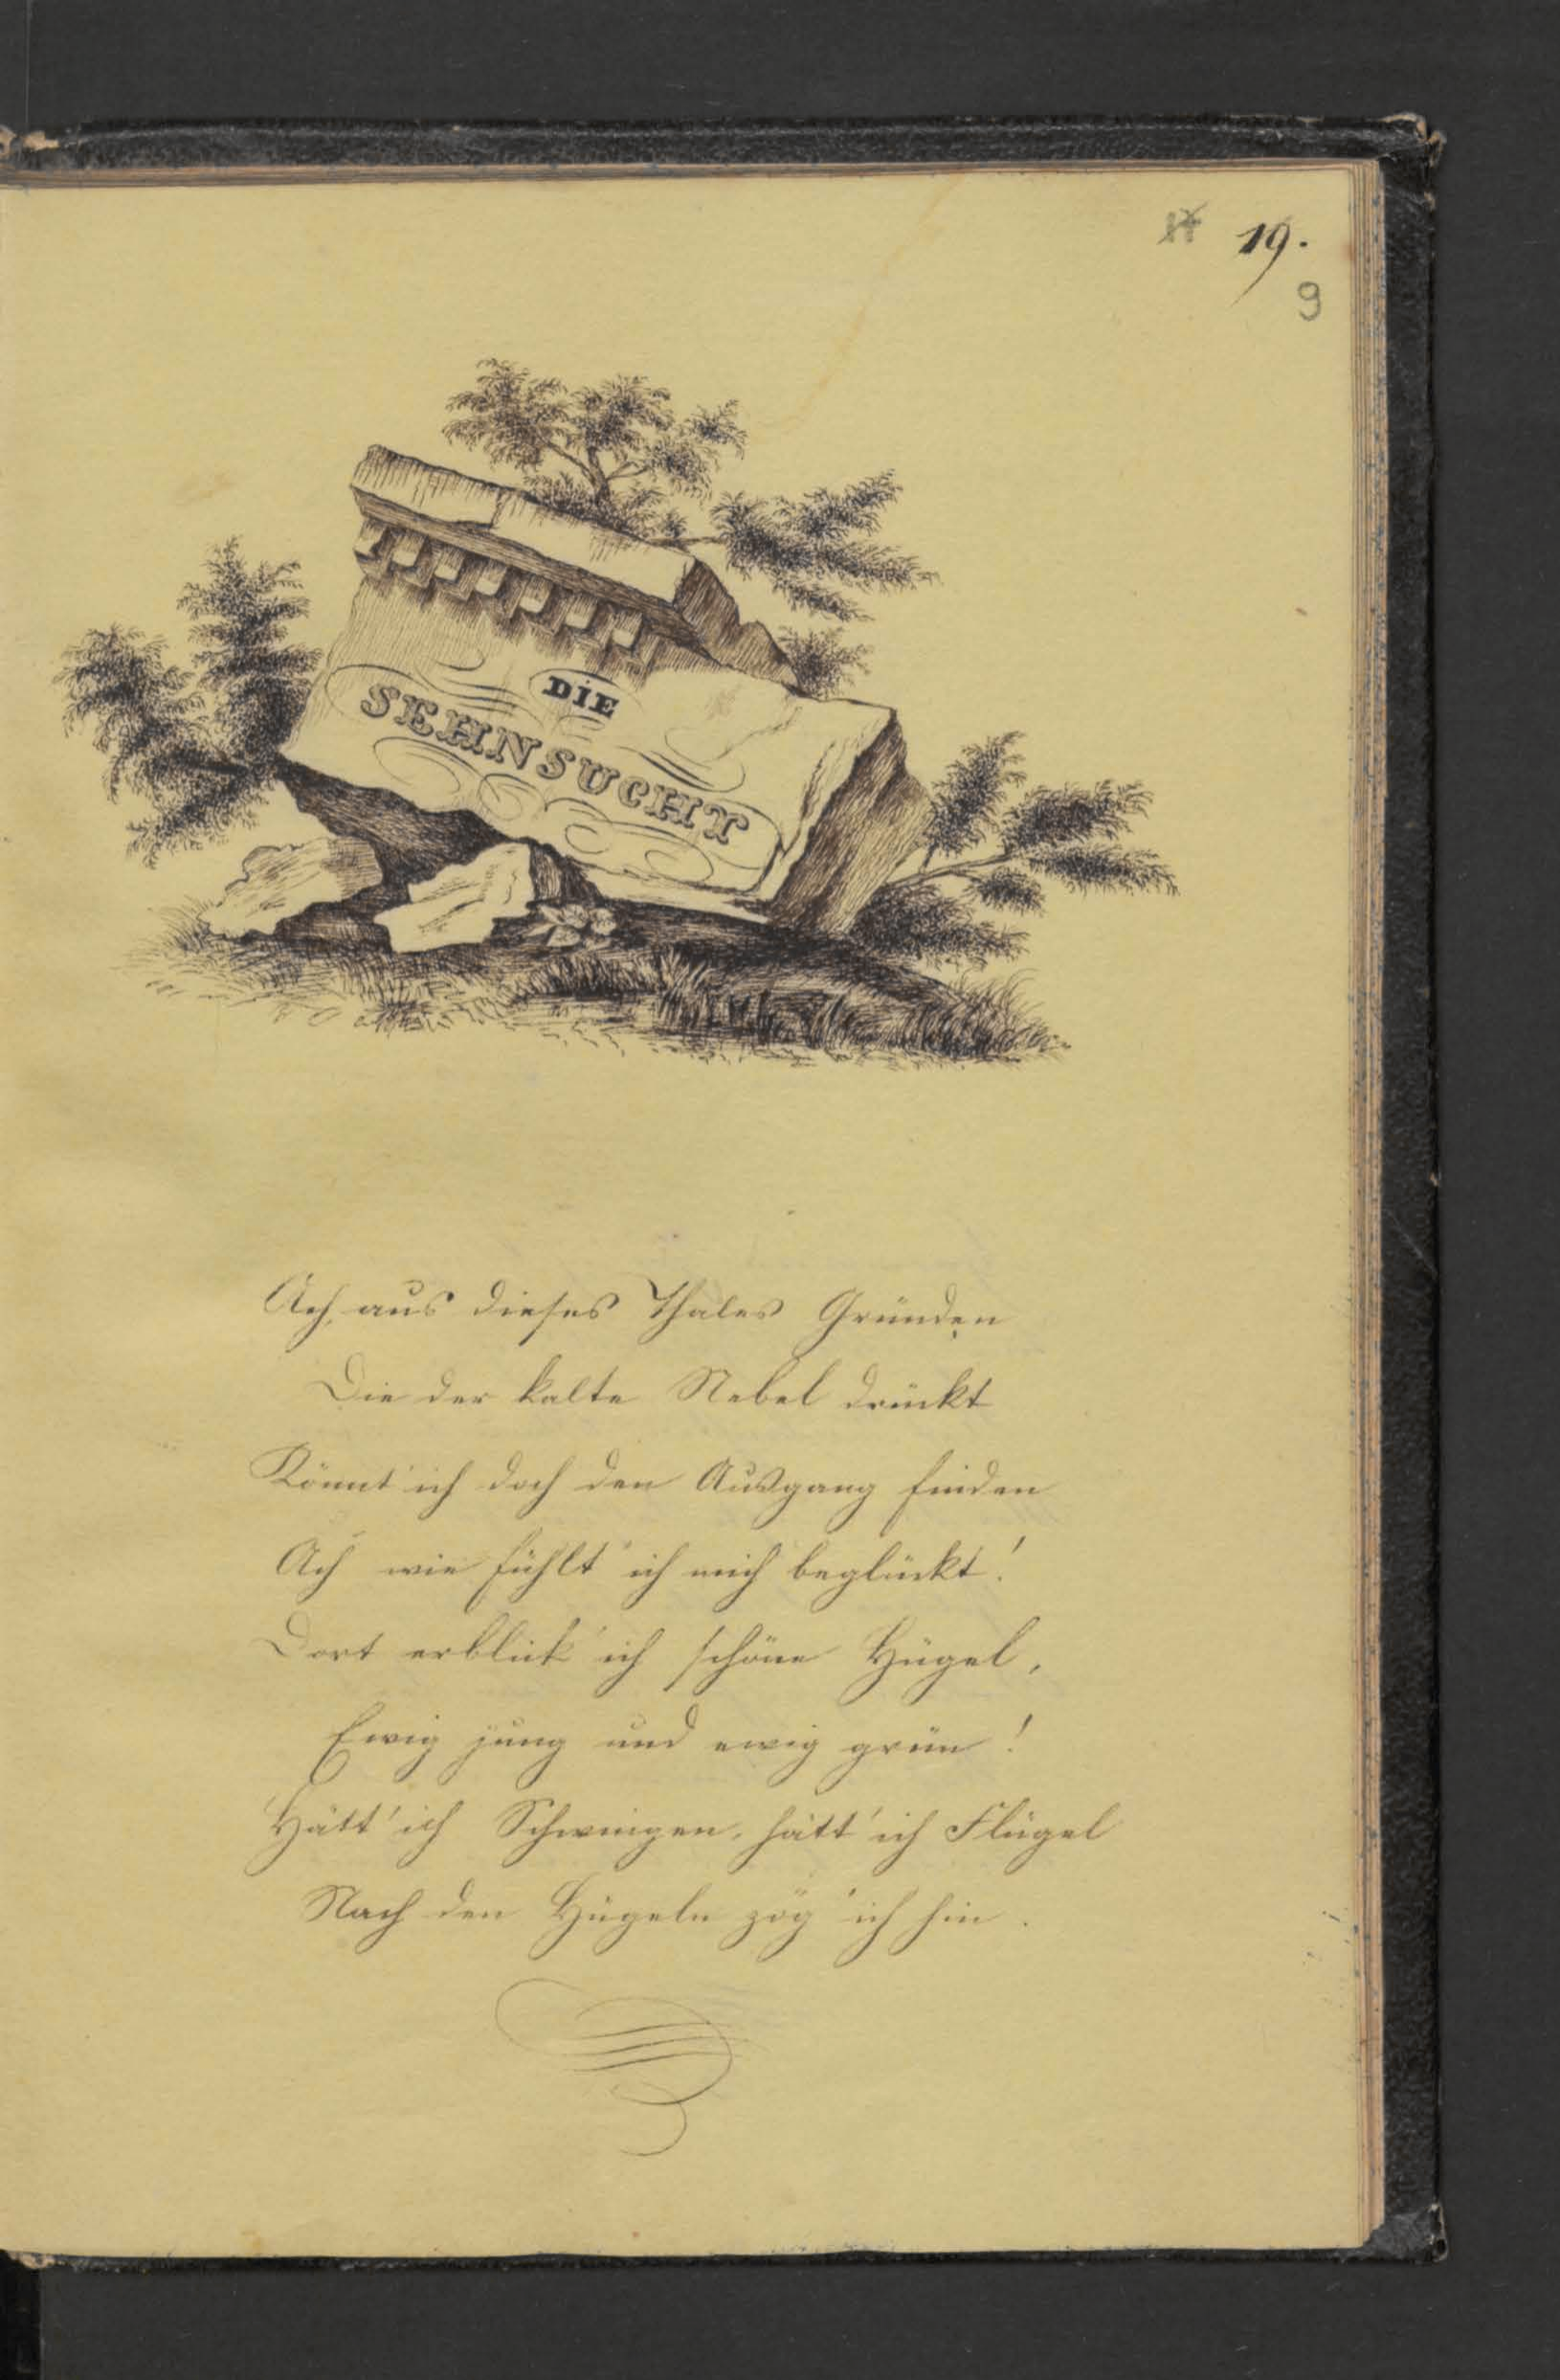 19.
9
DIE
SEHNSUCHT
Ach, aus dieses Thales Gründen
Die der kalte Nebel drückt
Könnt' ich doch den Ausgang finden
Ach wie fühlt' ich mich beglückt!
Dort erblick' ich schöne Hügel,
Ewig jung und ewig grün!
Hätt' ich Schwingen, hätt' ich Flügel
Nach den Hügeln zög' ich hin.